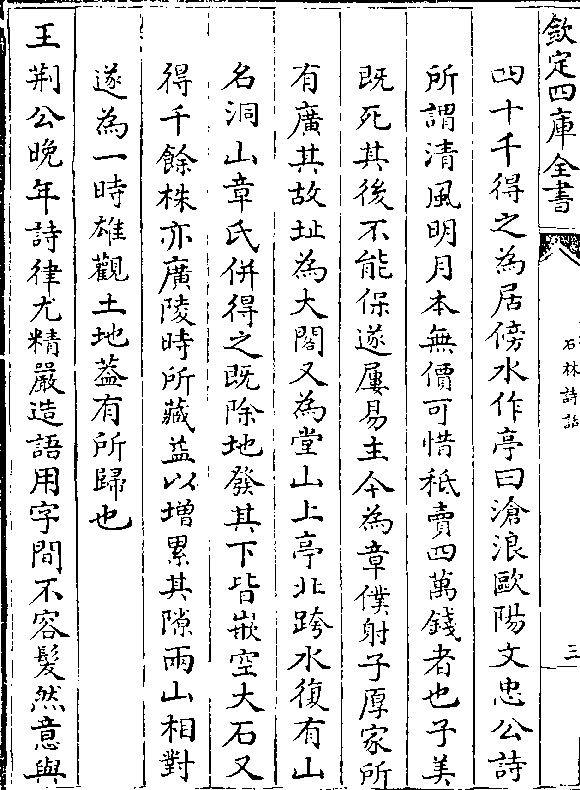 欽定四庫全書
石林詩話
三
四十千得之為居傍水作亭曰滄浪歐陽文忠公詩
所謂清風明月本無價可惜秪賣四萬錢者也子美
既死其後不能保遂屢易主今為章僕射子厚家所
有廣其故址為大閣又為堂山上亭北跨水復有山
名洞山章氏併得之既除地發其下皆嵌空大石又
得千餘株亦廣陵時所藏益以增累其隙兩山相對
遂為一時雄觀土地葢有所歸也
王荆公晚年詩律尤精嚴造語用字間不容髮然意與